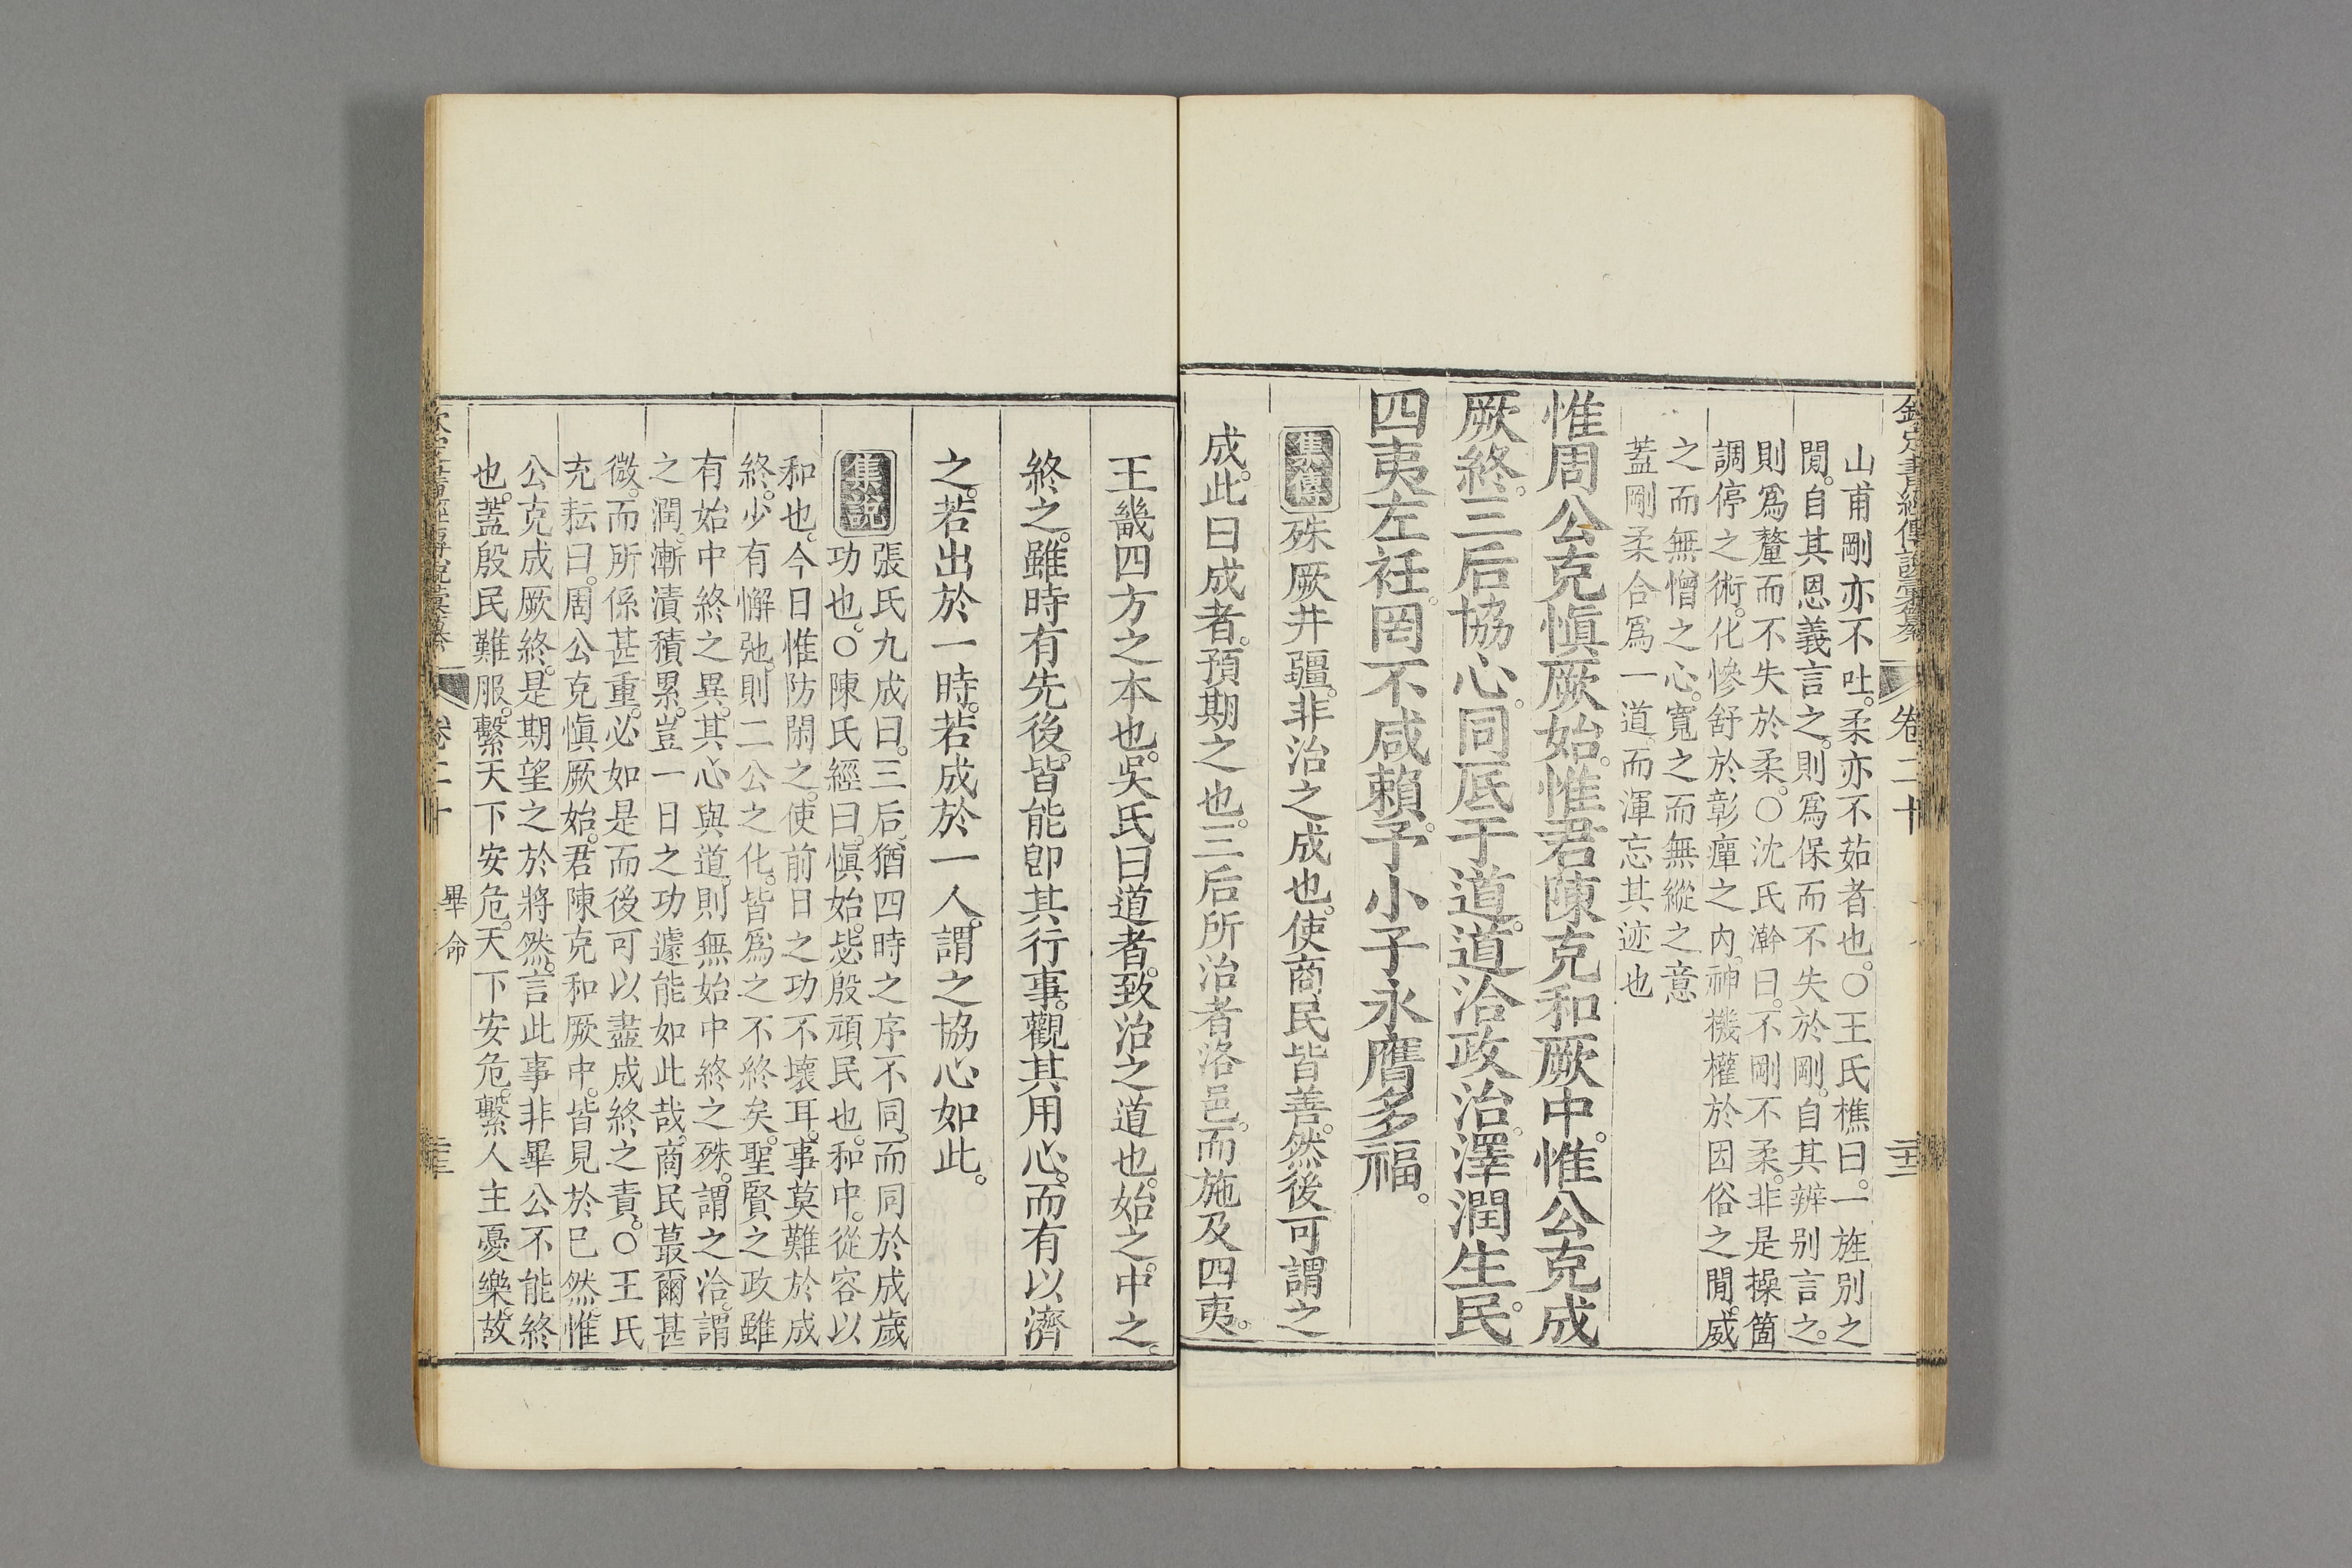 欽定書經傳說彙纂 卷二十
山甫剛亦不吐。柔亦不茹者也。○王氏樵曰。一旌別之
閒。自其恩義言之。則爲保而不失於剛。自其辨別言之。
則爲釐而不失於柔。○沈氏澣曰。不剛不柔。非是操箇
調停之術。化慘舒於彰癉之內。神機權於因俗之閒。威
之而無憎之心。寬之而無縱之意
蓋剛柔合爲一道。而渾忘其迹也
惟周公克愼厥始。惟君陳克和厥中。惟公克成
厥終。三后協心。同厎于道。道洽政治。澤潤生民。
四夷左衽。罔不咸賴。予小子永膺多福。
集傳 殊厥井疆。非治之成也。使商民皆善。然後可謂之
成。此曰成者。預期之也。三后所治者洛邑。而施及四夷。
王畿四方之本也。吳氏曰道者。致治之道也。始之。中之。
終之。雖時有先後。皆能卽其行事。觀其用心。而有以濟
之。若出於一時。若成於一人。謂之協心如此。
集說
張氏九成曰。三后。猶四時之序不同。而同於成歲
功也。○陳氏經曰。愼始。毖殷頑民也。和中。從容以
和也。今日惟防閑之。使前日之功不壞耳。事莫難於成
終。少有懈弛。則二公之化。皆爲之不終矣。聖賢之政雖
有始中終之異。其心與道。則無始中終之殊。謂之洽。謂
之潤。漸漬積累。豈一日之功遽能如此哉。商民蕞爾甚
微。而所係甚重。必如是而後可以盡成終之責。○王氏
充耘曰。周公克愼厥始。君陳克和厥中。皆見於已然。惟
公克成厥終。是期望之於將然。言此事非畢公不能終
也。蓋殷民難服。繫天下安危。天下安危。繫人主憂樂。故
欽定書經傳說彙纂 卷二十 畢命